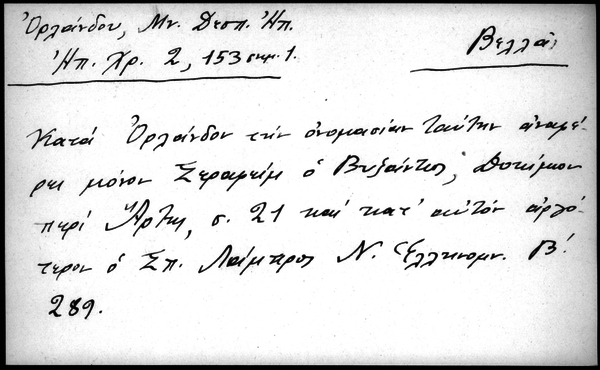 Ὀρλάνδου, Μν. Δεσπ. Ἠπ.
Ἠπ. Χρ. 2, 153 σημ. 1.
Βελλᾶς
Κατά Ὀρλάνδον τήν ὀνομασίαν ταύτην ἀναφέ-
ρει μόνον Σεραφείμ ὁ Βυζάντιος, Δοκίμιον
περί Ἄρτης, σ. 21 καί κατ' αὐτόν ἀργό-
τερον ὁ Σπ. Λάμπρος Ν. Ἑλληνομν. Β'.
289.